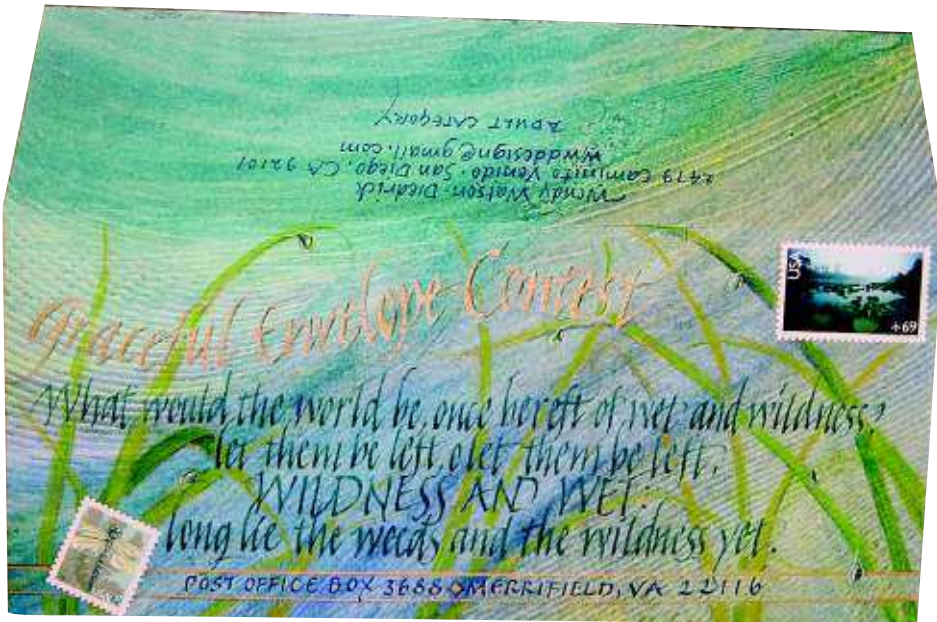 Wendy Watson-Diedrich
2479 Caminito Venido · San Diego, CA 92101
wwddesign@gmail.com
ADULT CATEGORY
Graceful Envelope Contest
USA
+69
What would the world be, once bereft of wet and wildness?
let them be left, o let them be left,
WILDNESS AND WET.
long live the weeds and the wildness yet.
POST OFFICE BOX 3688 MERRIFIELD, VA 22116